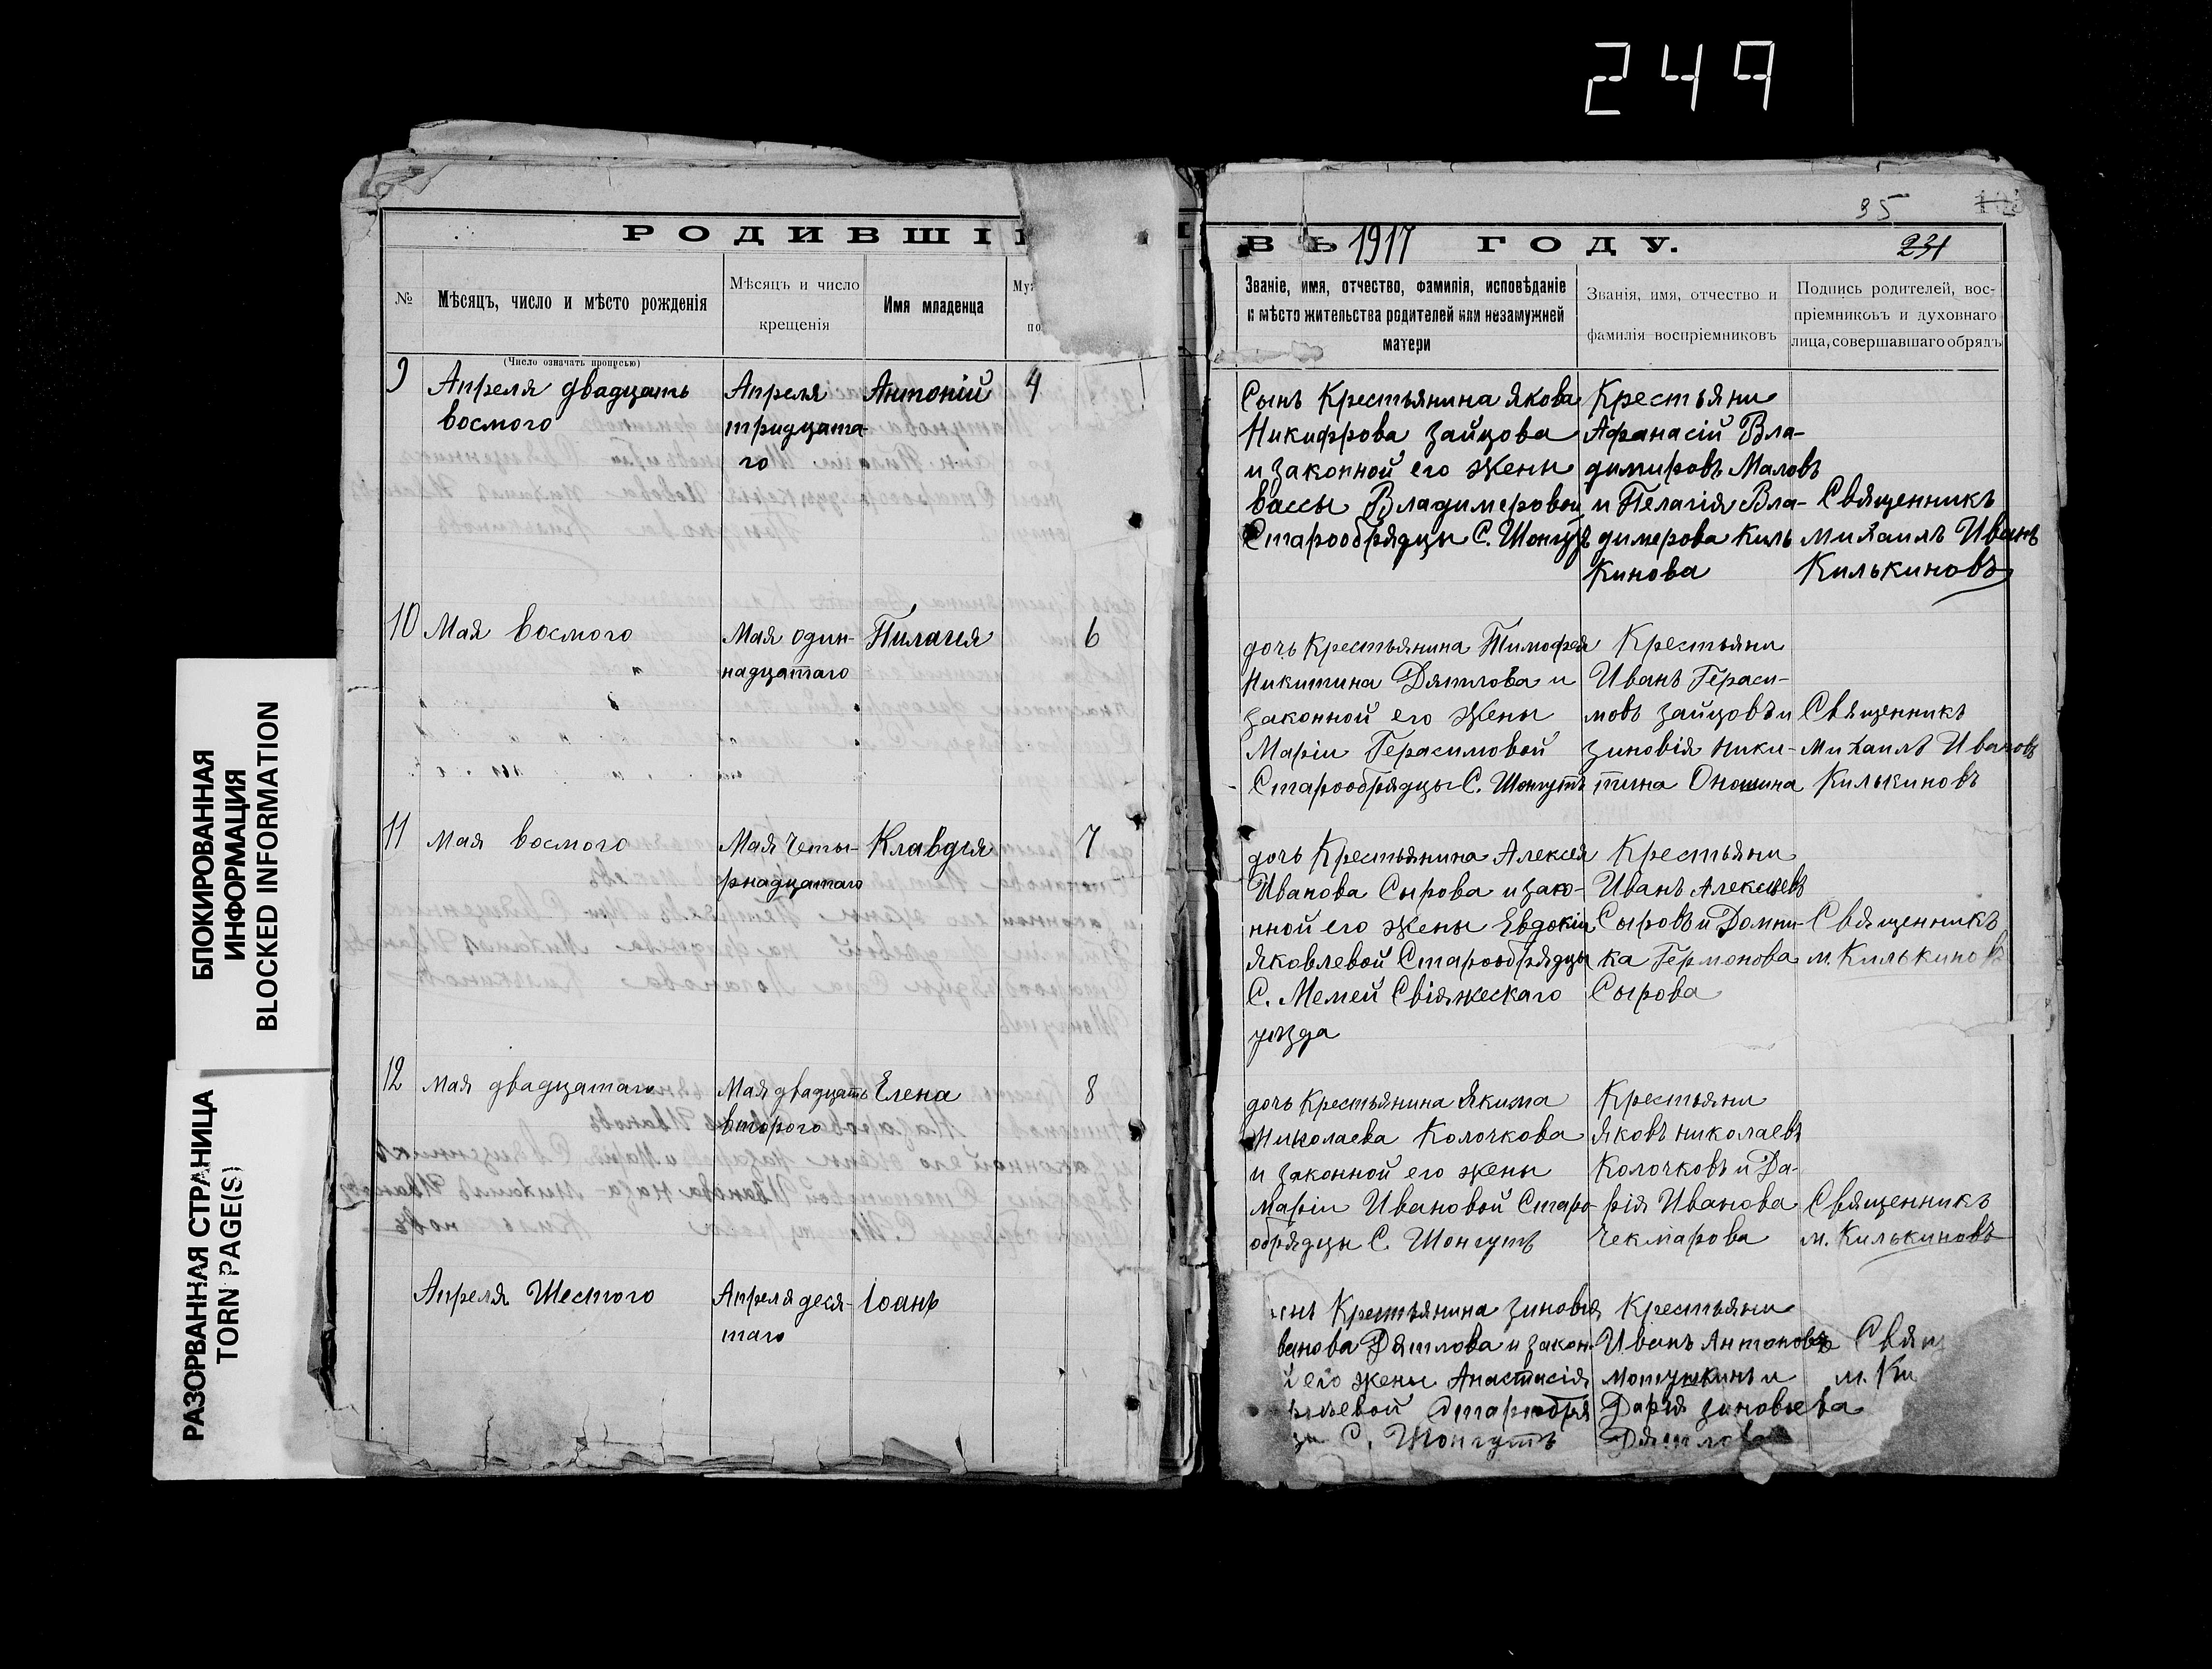 249
БЛОКИРОВАННАЯ
ИНФОРМАЦИЯ
BLOCKED INFORMATION
РАЗОРВАННАЯ СТРАНИЦА
TORN PAGE(S)
РОДИВШІ
№
Мѣсяцъ, число и мѣсто рожденія
Мѣсяцъ и число
крещенія
Имя младенца
(Число означать прописью)
9
Апреля двадцать
восмого
Апреля
тридцата-
го
Антоній
4
10
Мая восмого
Мая один-
надцатаго
Пилагея
6
11
Мая восмого
Мая четы-
рнадцатаго
Клавдія
7
12
Мая двадцатаго
Мая двадцать
второго
Елена
8
Апреля Шестого
Апреля деся-
таго
Іоанъ
35
231
ВЪ 1917 ГОДУ.
Званіе, имя, отчество, фамилія, исповѣданіе
и мѣсто жительства родителей или незамужней
матери
Званія, имя, отчество и
фамилія воспріемниковъ
Подпись родителей, вос-
пріемниковъ и духовнаго
лица, совершавшаго обрядъ
Сынъ Крестьянина Якова
Никифрова Зайцова
и законной его жены
Вассы Владимеровой
Старообрядцы С. Шонгутъ
Крестьяни
Афанасій Вла-
димировъ Маловъ
и Пелагія Вла-
димерова Киль
кинова
Священникъ
Михаилъ Иванъ
Килькиновъ
дочь Крестьянина Тимофея
Никитина Дятлова и
законной его жены
Маріи Герасимовой
Старообрядцы С. Шонгутъ
Крестьяни
Иванъ Гераси-
мовъ Зайцовъ и
Зиновія Ники-
тина Оношина
Священникъ
Михаилъ Ивановъ
Килькиновъ
дочь Крестьянина Алексея
Иванова Сырова и зако-
нной его жены Евдокіи
Яковлевой Старообрядцы
С. Мемей Свіяжескаго
уезда
Крестьяни
Иванъ Алексеевъ
Сыровъ и Домни-
ка Гермонова
Сырова
Священникъ
М. Килькиновъ
дочь Крестьянина Якима
Николаева Колочкова
и законной его жены
Маріи Ивановой Старо-
обрядцы С. Шонгутъ
Крестьяни
Яковъ Николаевъ
Колочковъ и Да-
рія Иванова
Чекмарова
Священникъ
М. Килькиновъ
Крестьянина Зиновія
ванова Дятлова и закон-
й его жены Анастасія
Старообря
С. Шонгутъ
Крестьяни
Иванъ Антоновъ
Мотушкинъ и
Дарія Зиновьева
Дятлова
Свящ
М. Ки